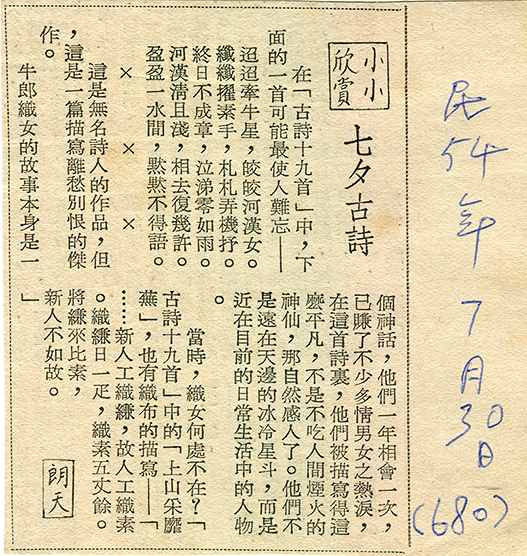 民54年7月30日
(680)
小小
欣賞
七夕古詩
在「古詩十九首」中，下
面的一首可能最使人難忘——
迢迢牽牛星，皎皎河漢女。
纖纖擢素手，札札弄機抒。
終日不成章，泣涕零如雨。
河漢清且淺，相去復幾許。
盈盈一水間，默默不得語。
× × ×
這是無名詩人的作品，但
，這是一篇描寫離愁別恨的傑
作。
牛郎織女的故事本身是一
個神話，他們一年相會一次，
已賺了不少多情男女之熱淚，
在這首詩裏，他們被描寫得這
麼平凡，不是不吃人間煙火的
神仙，那自然感人了。他們不
是遠在天邊的冰冷星斗，而是
近在目前的日常生活中的人物
。
當時，織女何處不在？「
古詩十九首」中的「上山采靡
蕪」，也有織布的描寫——「
……新人工織縑，故人工織素
。織縑日一疋，織素五丈餘。
將縑來比素，
新人不如故。
」
朗天